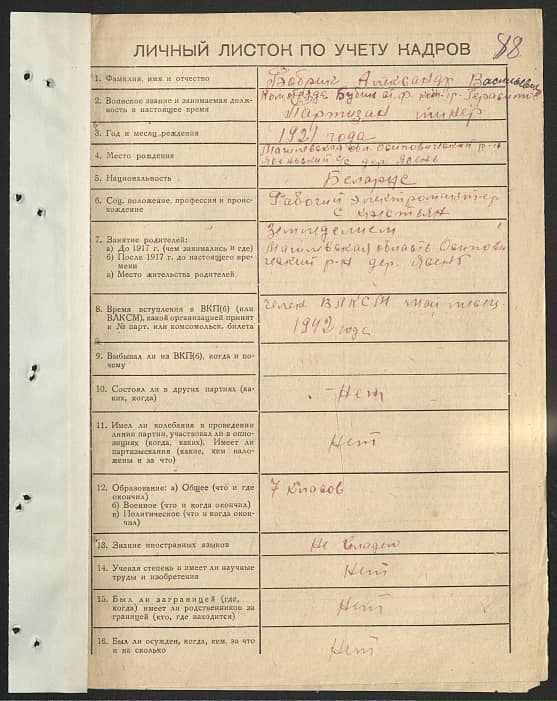 ЛИЧНЫЙ ЛИСТОК ПО УЧЕТУ КАДРОВ
88
1. Фамилия, имя и отчество
Бобрик Александр Васильевич
2. Воинское звание и занимаемая должность в настоящее время
Партизан минер
3. Год и месяц рождения
1921 года
4. Место рождения
Магилевская обл. Осиповичский р-н
с/с дер. Ясень
5. Национальность
Беларус
6. Соц. положение, профессия и происхождение
Рабочий электромонтер
с крестьян
7. Занятие родителей:
а) До 1917 г. (чем занимались и где)
б) После 1917 г. до настоящего времени
в) Место жительства родителей
Земледелием
Магилевская область Осипови
ческий р-н дер. Ясень
8. Время вступления в ВКП(б) (или ВЛКСМ), какой организацией принят и № парт. или комсомольск. билета
член ВЛКСМ май месяц
1942 года
9. Выбывал ли из ВКП(б), когда и почему
10. Состоял ли в других партиях (каких, когда)
Нет
11. Имел ли колебания в проведении линии партии, участвовал ли в оппозициях (когда, каких). Имеет ли партвзыскания (какие, кем наложены и за что)
Нет
12. Образование: а) Общее (что и где окончил)
б) Военное (что и когда окончил)
в) Политическое (что и когда окончил)
7 класов
13. Знание иностранных языков
Не владею
14. Ученая степень и имеет ли научные труды и изобретения
Нет
15. Был ли заграницей (где, когда) имеет ли родственников за границей (кто, где находится)
Нет
16. Был ли осужден, когда, кем, за что и на сколько
Нет